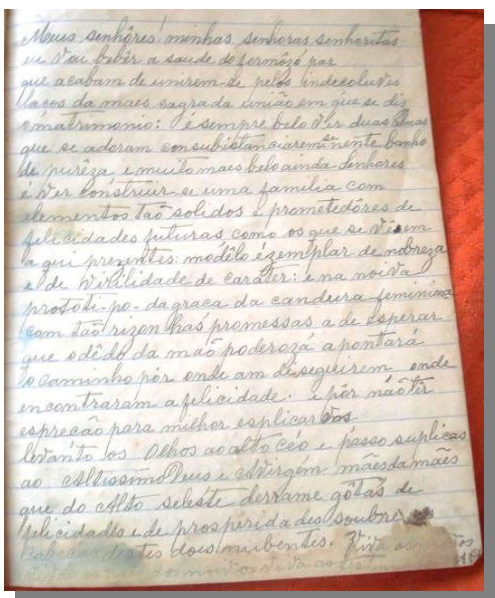 Meus senhôres! minhas senhoras senhoritas
eu vou bebêr a saude do formôzo par
que acabam de unirem-se pelos indecoluves
lacos da maes sagrada união em que se diz
o matrimonio: é sempre belo ver duas almas
que se adoram consubistanciarem-se neste banho
de purêza, e muito mais belo ainda Senhores
é ver construir se uma familia com
elementos taõ solidos e prometedôres de
felicidades futuras como os que se vêem
a qui prezentes: modêlo ezemplar de nobreza
e de virilidade de carater: e na noiva
prototi-po- da graca da candura feminina
com taõ rizon has promessas a de esperar
que o dêdo da maõ poderoza apontará
o caminho pôr onde am de seguirem onde
encontraram a felicidade. e pôr naõ têr
esprecaõ para milhor esplicar vos
levanto os Olhos ao alto céo e passo suplicas
ao Altissimo Deus e a Virgem mães da mães
que do Alto seleste derrame gôtas de
felicidades e de prosperidades soubre
cabecas destes dois nuibentes. Viva os noivos